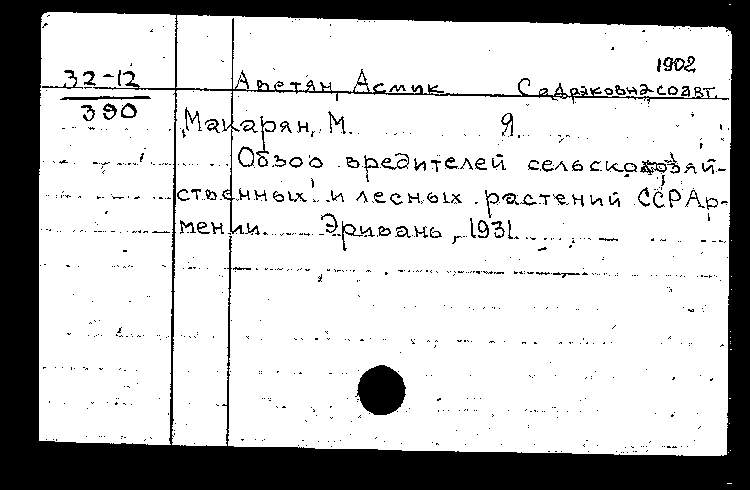 1902
32-12
390
Аветян, Асмик Садраковна соавт.
Макарян, М. Я.
Обзор вредителей сельскохозяй-
ственных и лесных растений ССР Ар-
мении. Эривань, 1931